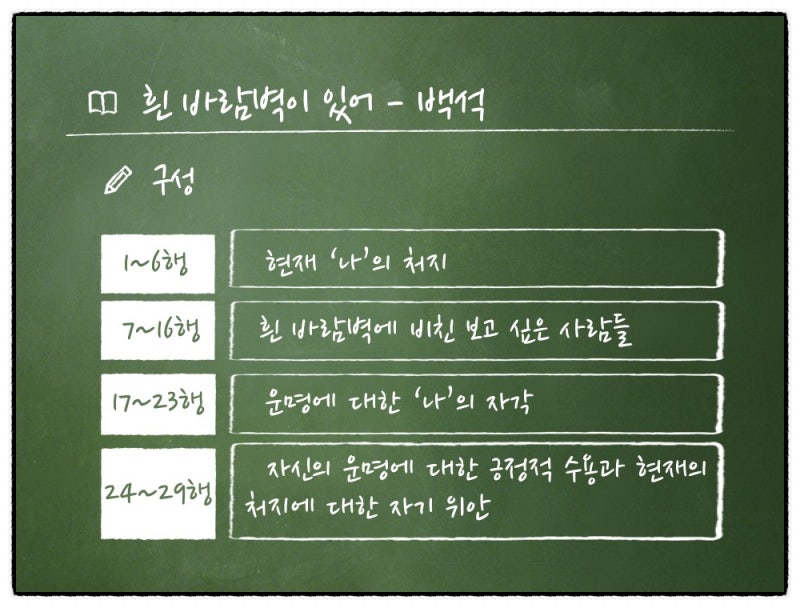 흰 바람벽이 있어 - 백석
구성
1~6행
현재 '나'의 처지
7~16행
흰 바람벽에 비친 보고 싶은 사람들
17~23행
운명에 대한 '나'의 자각
24~29행
자신의 운명에 대한 긍정적 수용과 현재의
처지에 대한 자기 위안